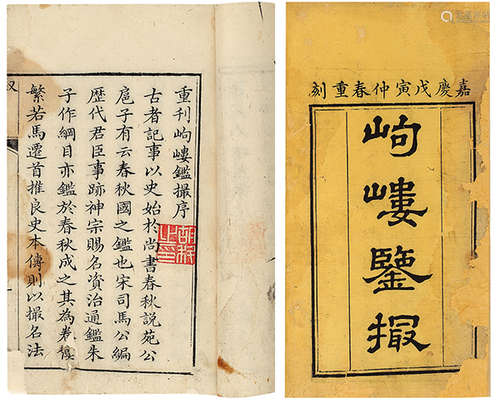 嘉慶戊寅仲春重刻
岣嶁鑒撮
重刊岣嶁鑑撮序
古者記事以史始於尚書春秋說苑公
扈子有云春秋國之鑑也宋司馬公編
歷代君臣事跡神宗賜名資治通鑑朱
子作綱目亦鑑於春秋成之其為卷慎
繁若馬遷首推良史本傳則以撮名法